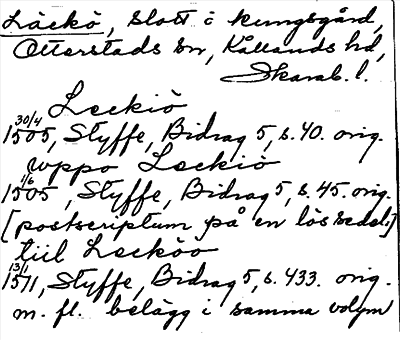 Läckö, slott i kungsgård,
Otterstads sn, Kållands hd,
Skarab. l.
Leckiö
30/4 1505, Styffe, Bidrag 5, s. 40. orig.
uppo Leckiö
1/6 1505, Styffe, Bidrag 5, s. 45. orig.
[postscriptum på en lös sedel.]
tiil Lecköö
13/1 1571, Styffe, Bidrag 5, s. 433. orig.
m. fl. belägg i samma volym